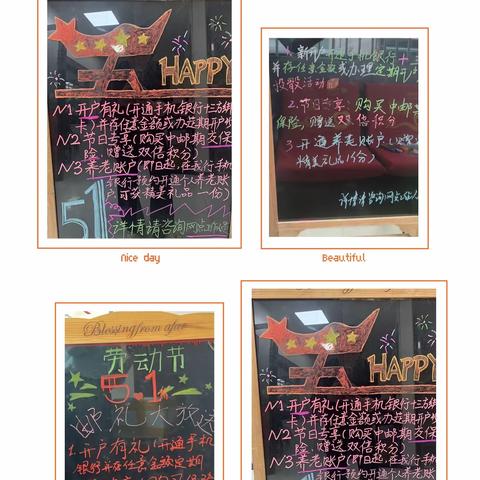 五一
HAPPY
51
N1 开户有礼(开通手机银行+三方绑
卡)并存任意金额或办定期开户
N2 节日专享(购买中邮期交保
险,赠送双倍积分)
N3 养老账户(即日起,在我行手机
银行预约开通个人养老账
户,可获精美礼品一份)
51
详情请咨询网点
Nice day
1. 新开户开通手机银行+
并存任意金额或办理定期开
2. 节日专享:购买中邮
保险,赠送双倍积分
3. 开通养老账户
精美礼品1份)
详情请咨询网点
Beautiful
Blessing from afar
劳动节
5.1
邮礼大放送
1. 开户有礼(开通手机
银行并存任意金额定期
HAPPY
N1 开户有礼(开通手机银行+三方绑
卡)并存任意金额或办定期开户
N2 节日专享(购买中邮期交保
险,赠送双倍积分)
N3 养老账户(即日起,在我行手机
银行预约开通个人养老账